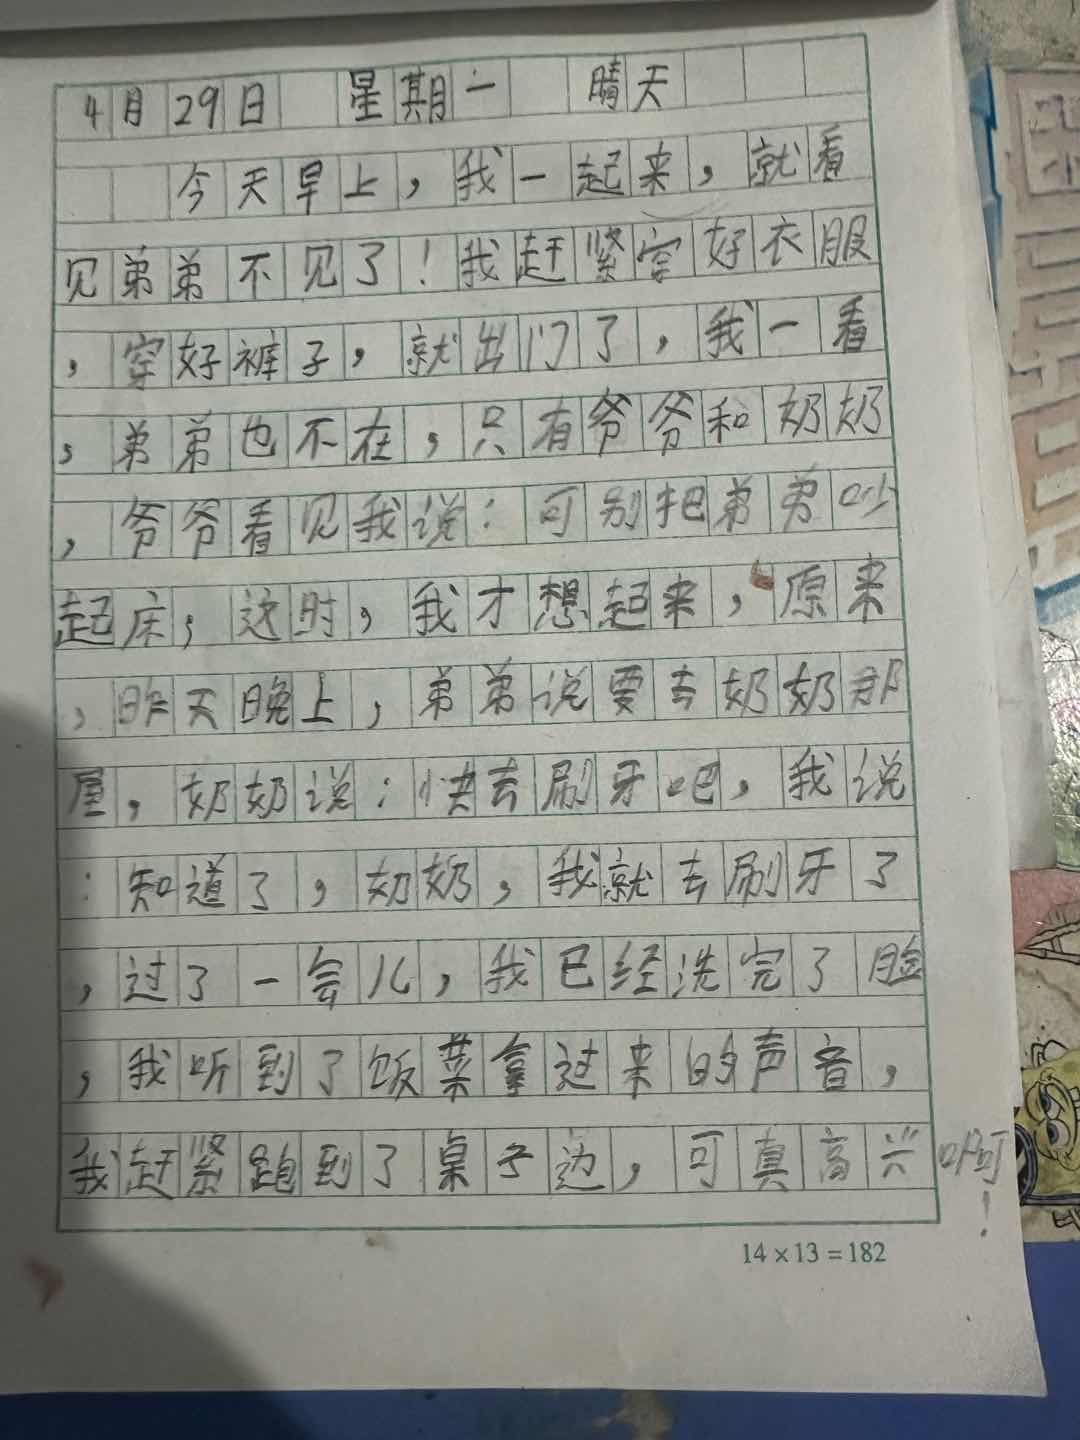 4月29日 星期一 晴天
今天早上，我一起来，就看
见弟弟不见了！我赶紧穿好衣服
，穿好裤子，就出门了，我一看
，弟弟也不在，只有爷爷和奶奶
，爷爷看见我说：可别把弟弟吵
起床，这时，我才想起来，原来
，昨天晚上，弟弟说要去奶奶那
屋，奶奶说：快去刷牙吧，我说
：知道了，奶奶，我就去刷牙了
，过了一会儿，我已经洗完了脸
，我听到了饭菜拿过来的声音，
我赶紧跑到了桌子边，可真高兴啊！
14×13=182